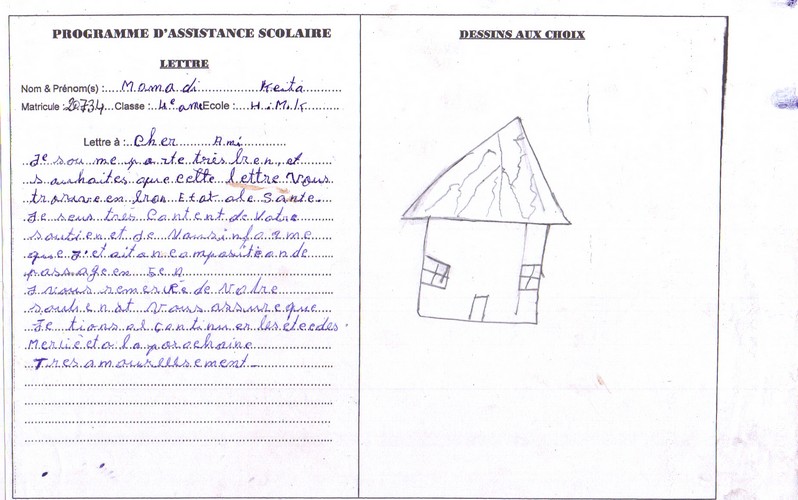 PROGRAMME D'ASSISTANCE SCOLAIRE
LETTRE
Nom & Prénom(s) : Mamadi Keita
Matricule : 20734 Classe : 4e ann Ecole : H.M.K
Lettre à : Cher Ami
Je sou me porte très bien, et
souhaites que cette lettre Vous
trouve en bon Etat de Santé.
Je seus très Content de Votre
soutien et Je Vous infaqme
que J'etait an compositean de
passage en 5e n
J vous remercie de Votre
souhenst Vous assure que
Je tions al continuer les etecdes.
Merci et a la porochaine
Tres amourellsement
DESSINS AUX CHOIX